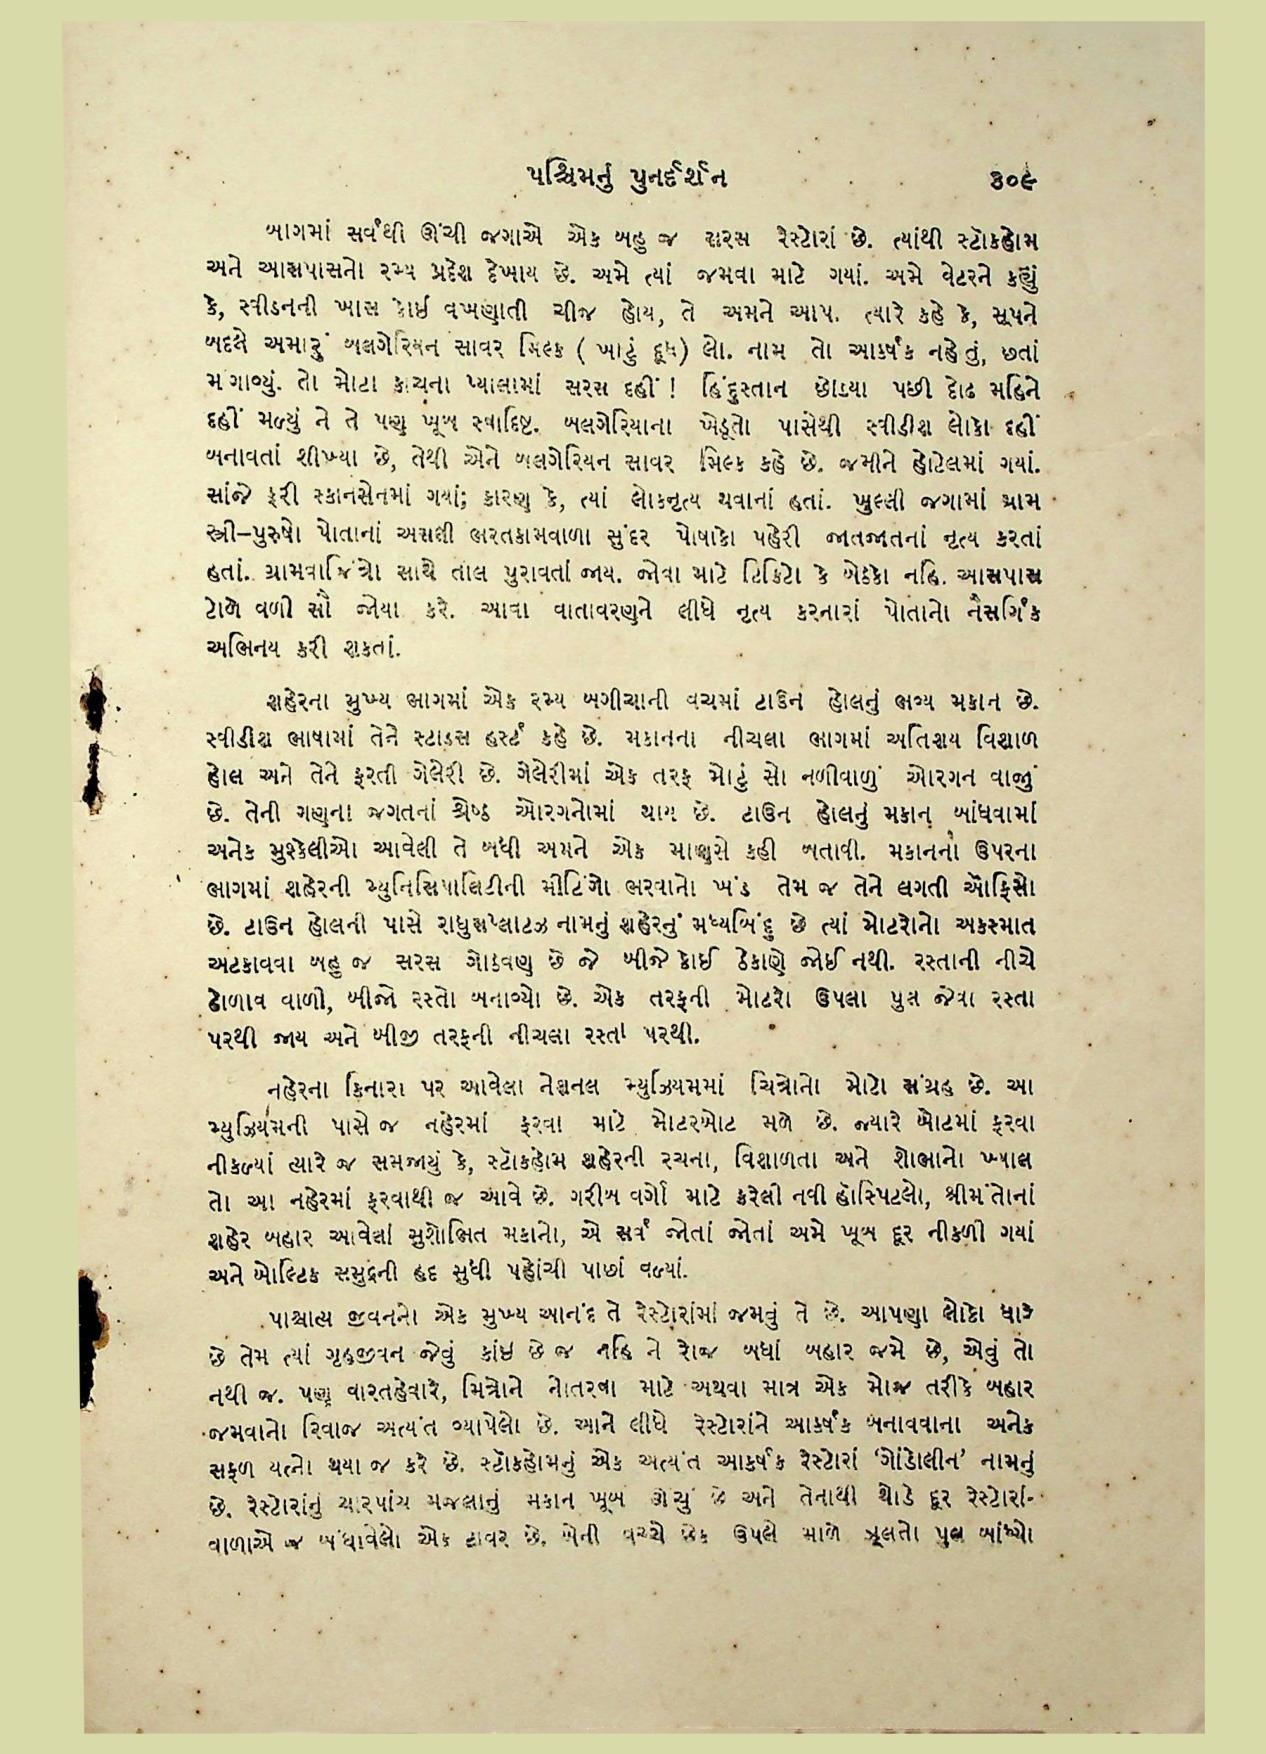 પશ્ચિમનું પુનર્દર્શન ૩૦૯
બાગમાં સર્વથી ઊંચી જગાએ એક બહુ જ સરસ રેસ્ટોરાં છે. ત્યાંથી સ્ટૉકહોમ
અને આસપાસનો રમ્ય પ્રદેશ દેખાય છે. અમે ત્યાં જમવા માટે ગયાં. અમે વેટરને કહ્યું
કે, સ્વીડનની ખાસ કોઈ વખણાતી ચીજ હોય, તે અમને આપ. ત્યારે કહે કે, સૂપને
બદલે અમારું બલગેરિયન સાવર મિલ્ક ( ખાટું દૂધ) લો. નામ તો આકર્ષક નહોતું, છતાં
મંગાવ્યું. તો મોટા કાચના પ્યાલામાં સરસ દહીં ! હિંદુસ્તાન છોડ્યા પછી દોઢ મહિને
દહીં મળ્યું ને તે પણ ખૂબ સ્વાદિષ્ટ. બલગેરિયાના ખેડૂતો પાસેથી સ્વીડીશ લોકો દહીં
બનાવતાં શીખ્યા છે, તેથી એને બલગેરિયન સાવર મિલ્ક કહે છે. જમીને હોટેલમાં ગયાં.
સાંજે ફરી સ્કાનસેનમાં ગયાં; કારણ કે, ત્યાં લોકનૃત્ય થવાનાં હતાં. ખુલ્લી જગામાં ગ્રામ
સ્ત્રી–પુરુષો પોતાનાં અસલી ભરતકામવાળા સુંદર પોષાકો પહેરી જાતજાતનાં નૃત્ય કરતાં
હતાં. ગ્રામવાજિંત્રો સાથે તાલ પુરાવતાં જાય. જોવા માટે ટિકિટો કે બેઠકો નહિ. આસપાસ
ટોળે વળી સૌ જોયા કરે. આવા વાતાવરણને લીધે નૃત્ય કરનારાં પોતાનો નૈસર્ગિક
અભિનય કરી શકતાં.
શહેરના મુખ્ય ભાગમાં એક રમ્ય બગીચાની વચમાં ટાઉન હોલનું ભવ્ય મકાન છે.
સ્વીડીશ ભાષામાં તેને સ્ટાડસ હર્સ્ટ કહે છે. મકાનના નીચલા ભાગમાં અતિશય વિશાળ
હોલ અને તેને ફરતી ગેલેરી છે. ગેલેરીમાં એક તરફ મોટું સો નળીવાળું ઓરગન વાજું
છે. તેની ગણના જગતનાં શ્રેષ્ઠ ઓરગનોમાં થાય છે. ટાઉન હોલનું મકાન બાંધવામાં
અનેક મુશ્કેલીઓ આવેલી તે બધી અમને એક માણસે કહી બતાવી. મકાનના ઉપરના
ભાગમાં શહેરની મ્યુનિસિપાલિટીની મીટિંગો ભરવાનો ખંડ તેમ જ તેને લગતી ઑફિસો
છે. ટાઉન હોલની પાસે રાધુસપ્લાટઝ નામનું શહેરનું મધ્યબિંદુ છે ત્યાં મોટરોનો અકસ્માત
અટકાવવા બહુ જ સરસ ગોઠવણ છે જે બીજે કોઈ ઠેકાણે જોઈ નથી. રસ્તાની નીચે
ઢોળાવ વાળી, બીજો રસ્તો બનાવ્યો છે. એક તરફની મોટરો ઉપલા પુલ જેવા રસ્તા
પરથી જાય અને બીજી તરફની નીચલા રસ્તા પરથી.
નહેરના કિનારા પર આવેલા નેશનલ મ્યુઝિયમમાં ચિત્રોનો મોટો સંગ્રહ છે. આ
મ્યુઝિયમની પાસે જ નહેરમાં ફરવા માટે મોટરબોટ મળે છે. જ્યારે બોટમાં ફરવા
નીકળ્યાં ત્યારે જ સમજાયું કે, સ્ટૉકહોમ શહેરની રચના, વિશાળતા અને શોભાનો ખ્યાલ
તો આ નહેરમાં ફરવાથી જ આવે છે. ગરીબ વર્ગો માટે કરેલી નવી હૉસ્પિટલો, શ્રીમંતોનાં
શહેર બહાર આવેલાં સુશોભિત મકાનો, એ સર્વ જોતાં જોતાં અમે ખૂબ દૂર નીકળી ગયાં
અને બોલ્ટિક સમુદ્રની હદ સુધી પહોંચી પાછાં વળ્યાં.
પાશ્ચાત્ય જીવનનો એક મુખ્ય આનંદ તે રેસ્ટોરાંમાં જમવું તે છે. આપણા લોકો ધારે
છે તેમ ત્યાં ગૃહજીવન જેવું કાંઈ છે જ નહિ ને રોજ બધાં બહાર જમે છે, એવું તો
નથી જ. પણ વારતહેવારે, મિત્રોને નોતરવા માટે અથવા માત્ર એક મોજ તરીકે બહાર
જમવાનો રિવાજ અત્યંત વ્યાપેલો છે. આને લીધે રેસ્ટોરાંને આકર્ષક બનાવવાના અનેક
સફળ યત્નો થયા જ કરે છે. સ્ટૉકહોમનું એક અત્યંત આકર્ષક રેસ્ટોરાં ‘ગોંડોલીન’ નામનું
છે. રેસ્ટોરાંનું ચારપાંચ મજલાનું મકાન ખૂબ ઊંચું છે અને તેનાથી થોડે દૂર રેસ્ટોરાં-
વાળાએ જ બંધાવેલો એક ટાવર છે. બેની વચ્ચે છેક ઉપલે માળે ઝૂલતો પુલ બાંધ્યો